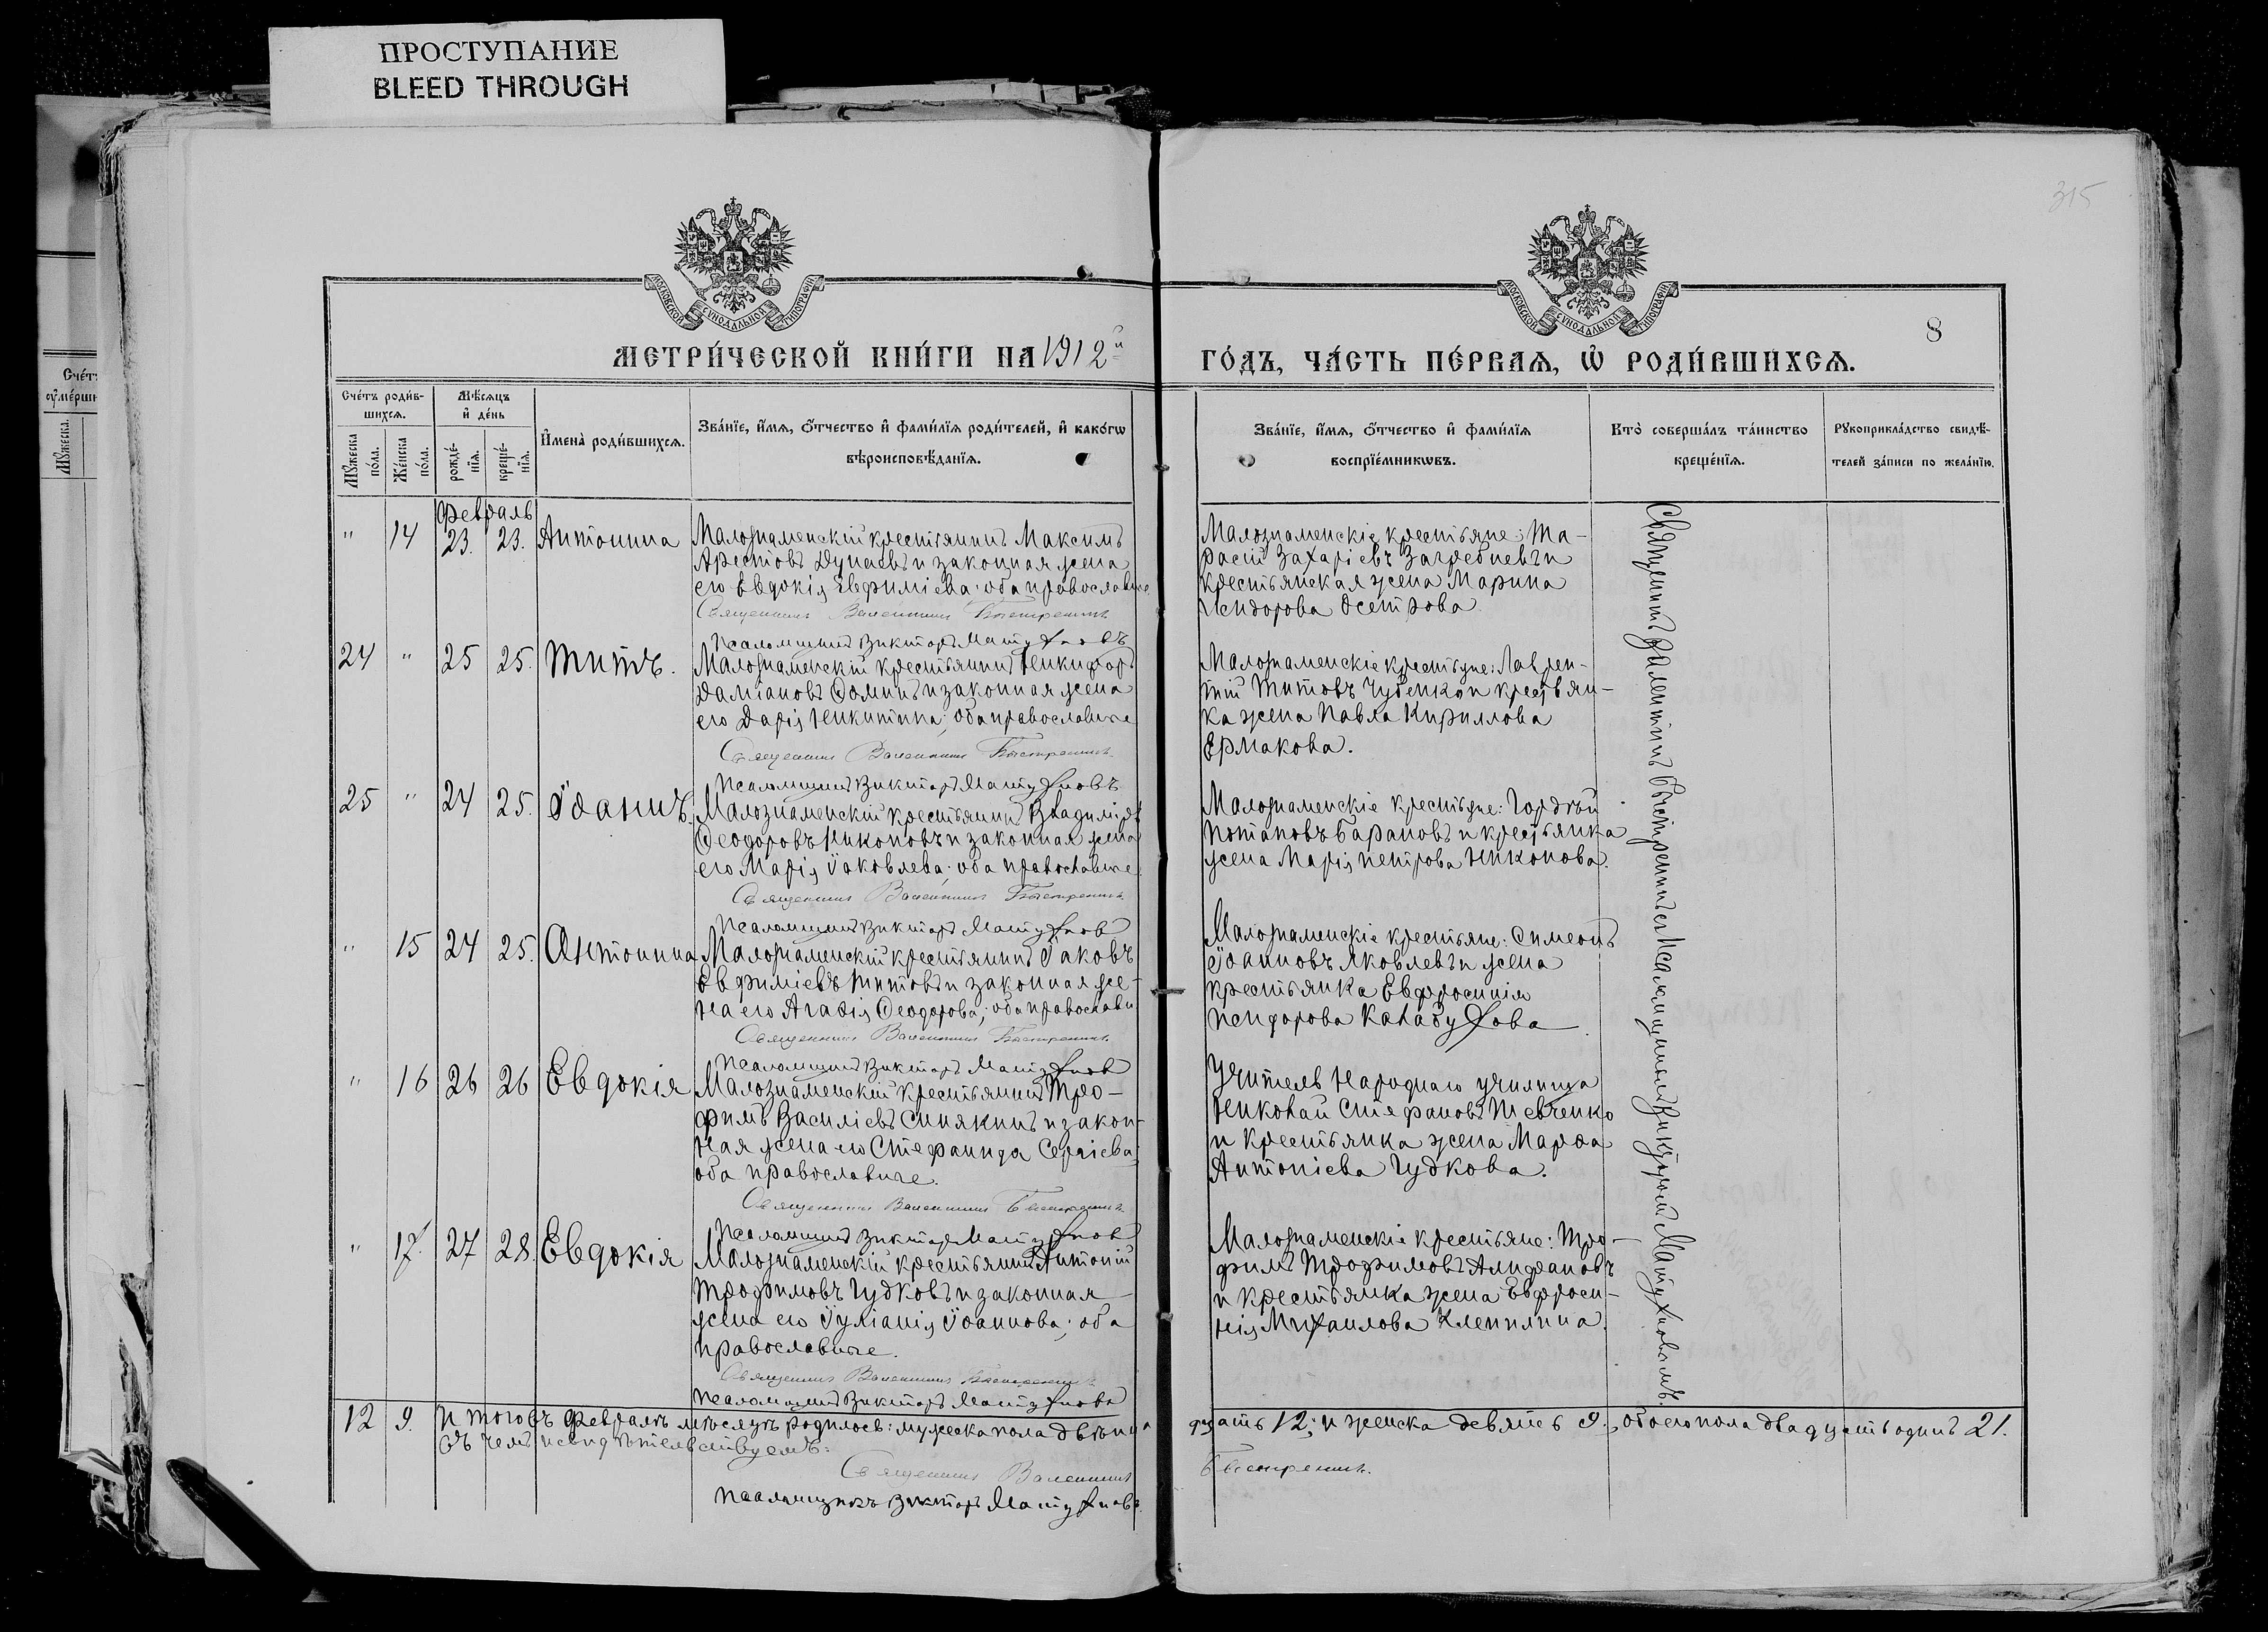 ПРОСТУПАНИЕ
BLEED THROUGH
315
МОСКОВСКОЙ СѴНОДАЛЬНОЙ ТИПОГРАФІИ
МОСКОВСКОЙ СѴНОДАЛЬНОЙ ТИПОГРАФІИ
8
МЕТРИ́ЧЕСКОЙ КНИ́ГИ НА 1912й
ГО́ДЪ, ЧА́СТЬ ПЕ́РВАЯ, Ѡ҆ РОДИ́ВШИХСЯ.
Сче́тъ роди́в-
шихсѧ.
Мꙋ́жеска по́ла.
Же́нска по́ла.
Мѣ́сѧцъ
и҆ де́нь
рожде́-нїѧ.
креще́-нїѧ.
И҆мена̀ роди́вшихсѧ.
Зва́нїе, и҆́мѧ, ѻ҆́тчество и҆ фами́лїѧ роди́телей, и҆ како́гѡ
вѣроисповѣ́данїѧ.
Зва́нїе, и҆́мѧ, ѻ҆́тчество и҆ фами́лїѧ
воспрїе́мникѡвъ.
Кто̀ соверша́лъ та́инство
креще́нїѧ.
Рꙋкоприкла́дство свидѣ́-
телей за́писи по жела́нїю.
Февраль
" 14 23. 23. Антонина
Малознаменскій крестьянинъ Максимъ
Арестовъ Дунаевъ и законная жена
его Евдокія Евфиміева; оба православные
Священникъ Валентинъ Быстренинъ
Псаломщикъ Викторъ Матухновъ
Малознаменскіе крестьяне: Та-
расій Захаріевъ Загребневъ и
крестьянская жена Марина
Исидорова Осетрова
24 " 25 25. Титъ.
Малознаменскій крестьянинъ Никифоръ
Даміановъ Ѳоминъ и законная жена
его Дарія Никитина; оба православные
Священникъ Валентинъ Быстренинъ
Псаломщикъ Викторъ Матухновъ
Малознаменскіе крестьяне: Лаврен-
тій Титовъ Чубенко и крестьян-
ка жена Павла Кириллова
Ермакова.
25 " 24 25. Іоаннъ.
Малознаменскій крестьянинъ Владиміръ
Ѳеодоровъ Никоновъ и законная жена
его Марія Іаковлева; оба православные
Священникъ Валентинъ Быстренинъ
Псаломщикъ Викторъ Матухновъ
Малознаменскіе крестьяне: Гордѣй
Потаповъ Барановъ и крестьянка
жена Марія Петрова Никонова.
" 15 24 25. Антонина
Малознаменскій крестьянинъ Іаковъ
Евфиміевъ Титовъ и законная же-
на его Агаѳія Ѳеодорова; оба православн
Священникъ Валентинъ Быстренинъ
Псаломщикъ Викторъ Матухновъ
Малознаменскіе крестьяне: Симеонъ
Іоанновъ Яковлевъ и жена
крестьянка Евфросинія
Калабухова
" 16 26 26 Евдокія
Малознаменскій крестьянинъ Тро-
фимъ Василіевъ Синякинъ и закон-
ная жена его Стефанида Сергіева;
оба православные.
Священникъ Валентинъ Быстренинъ
Псаломщикъ Викторъ Матухновъ
Учитель народнаго училища
Николай Стефановъ Шевченко
и крестьянка жена Марѳа
Антоніева Чудкова.
" 17. 27 28. Евдокія
Малознаменскій крестьянинъ Антоній
Трофимовъ Чудковъ и законная
жена его Іуліанія Іоаннова; оба
православные.
Священникъ Валентинъ Быстренинъ
Псаломщикъ Викторъ Матухновъ
Малознаменскіе крестьяне: Тро-
фимъ Трофимовъ Алифановъ
и крестьянка жена Евфроси-
нія Михаилова
Священникъ Валентинъ Быстренинъ съ Псаломщикомъ Викторомъ Матухновымъ.
12 9. Итого въ Февралѣ мѣсяцѣ родилось: мужеска пола двѣнадцать 12; и женска девять 9., обоего пола двадцать одинъ 21.
Въ чемъ и свидѣтельствуемъ:
Священникъ Валентинъ Быстренинъ.
Псаломщикъ Викторъ Матухновъ.
Сче́тъ
ᲂу҆ме́рши
Мꙋ́жеска.